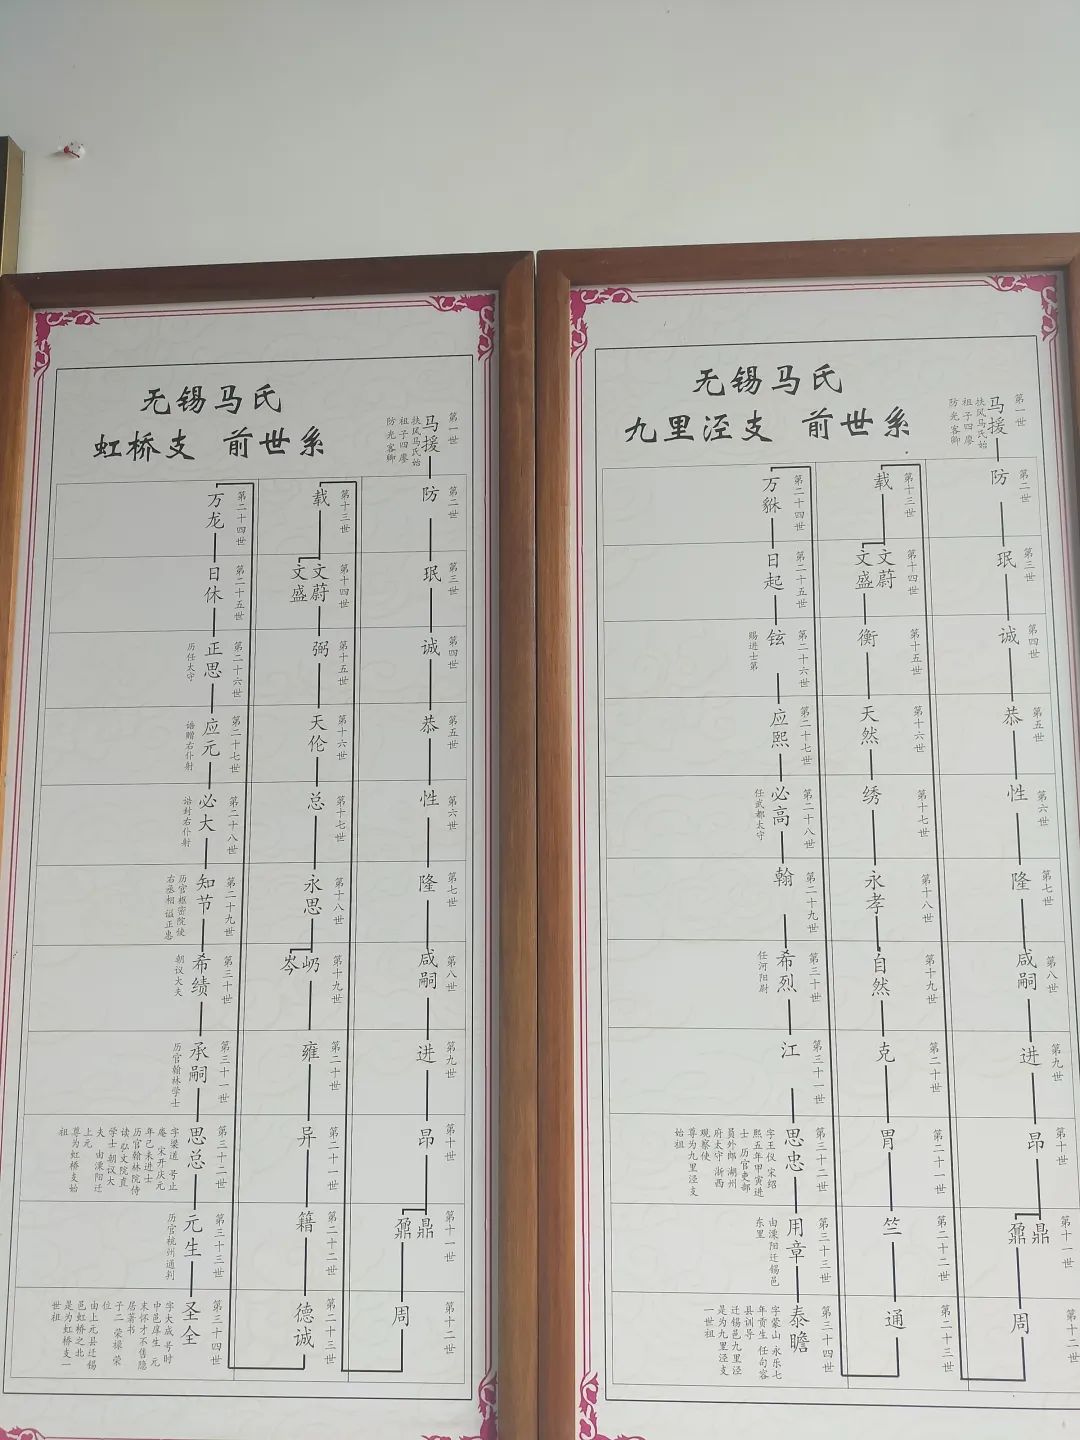 无锡马氏
虹桥支 前世系
第一世
马援
扶风马氏始
祖子四廖
防光客卿
第二世
防
第三世
珉
第四世
诚
第五世
恭
第六世
性
第七世
隆
第八世
咸嗣
第九世
进
第十世
昂
第十一世
鼎
鼐
第十二世
周
第十三世
载
第十四世
文蔚
文盛
第十五世
弼
第十六世
天伦
第十七世
总
第十八世
永思
第十九世
屷
岑
第二十世
雍
第二十一世
异
第二十二世
籍
第二十三世
德诚
第二十四世
万龙
第二十五世
日休
第二十六世
正思
历任太守
第二十七世
应元
诰赠右仆射
第二十八世
必大
诰封右仆射
第二十九世
知节
历官枢密院使
右丞相 谥正惠
第三十世
希绩
朝议大夫
第三十一世
承嗣
历官翰林学士
第三十二世
思总
字梁道 号止
庵 宋开庆元
年己未进士
历官翰林院侍
读 弘文院直
学士 朝议大
夫 由溧阳迁
上元
尊为虹桥支始
祖
第三十三世
元生
历官杭州通判
第三十四世
圣全
字大成 号时
中 邑庠生 元
末怀才不售隐
居著书
子二 荣禄 荣
位
由上元县迁锡
邑虹桥之北
是为虹桥支一
世祖
无锡马氏
九里泾支 前世系
第一世
马援
扶风马氏始
祖子四廖
防光客卿
第二世
防
第三世
珉
第四世
诚
第五世
恭
第六世
性
第七世
隆
第八世
咸嗣
第九世
进
第十世
昂
第十一世
鼎
鼐
第十二世
周
第十三世
载
第十四世
文蔚
文盛
第十五世
衡
第十六世
天然
第十七世
绣
第十八世
永孝
第十九世
自然
第二十世
克
第二十一世
胃
第二十二世
竺
第二十三世
通
第二十四世
万貅
第二十五世
日起
第二十六世
铉
赐进士第
第二十七世
应熙
第二十八世
必高
任武都太守
第二十九世
翰
第三十世
希烈
任河阳尉
第三十一世
江
第三十二世
思忠
字玉仪 宋绍
熙五年甲寅进
士 历官吏部
员外郎 湖州
府太守 浙西
观察使
尊为九里泾支
始祖
第三十三世
用章
由溧阳迁锡邑
东里
第三十四世
泰瞻
字蒙山 永乐七
年贡生 任句容
县训导
迁锡邑九里泾
是为九里泾支
一世祖